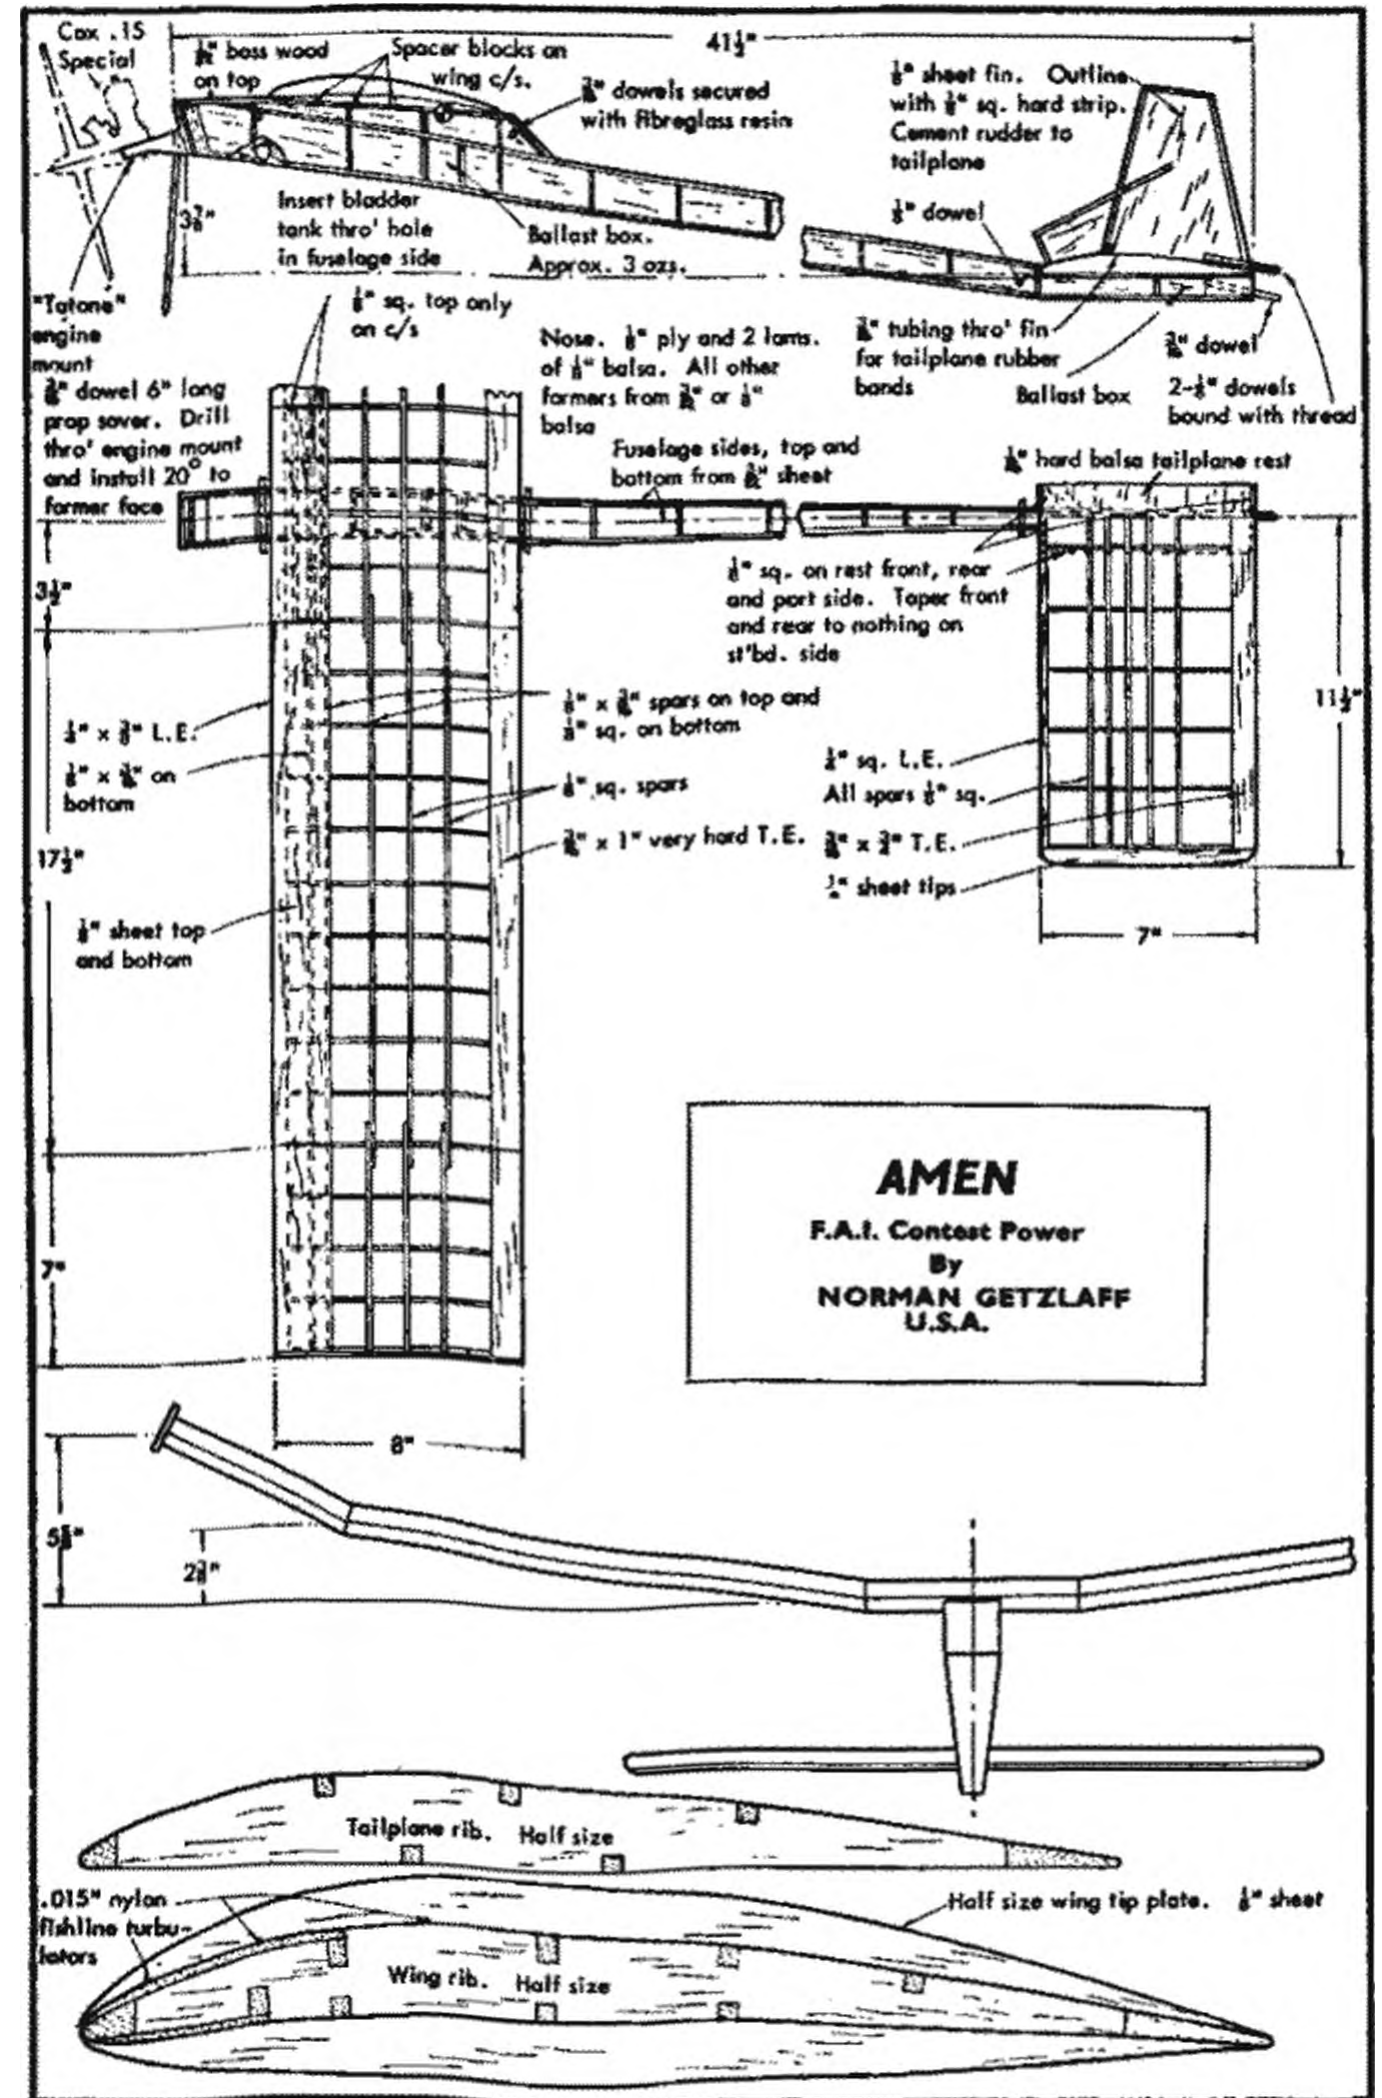 Cox .15
Special
1/32" bass wood
on top
Spacer blocks on
wing c/s.
41½"
3/16" dowels secured
with fibreglass resin
⅛" sheet fin. Outline
with ⅛" sq. hard strip.
Cement rudder to
tailplane
⅛" dowel
3⅞"
Insert bladder
tank thro' hole
in fuselage side
Ballast box.
Approx. 3 ozs.
"Tatone"
engine
mount
⅛" sq. top only
on c/s
Nose. ⅛" ply and 2 lams.
of ⅛" balsa. All other
formers from 3/32" or ⅛"
balsa
3/16" tubing thro' fin
for tailplane rubber
bands
Ballast box
3/16" dowel
2-⅛" dowels
bound with thread
3/16" dowel 6" long
prop saver. Drill
thro' engine mount
and install 20° to
former face
Fuselage sides, top and
bottom from 3/32" sheet
hard balsa tailplane rest
3½"
⅛" sq. on rest front, rear
and port side. Taper front
and rear to nothing on
st'bd. side
⅛" x 3/16" spars on top and
⅛" sq. on bottom
11½"
L.E.
⅛" x 3/16" on
bottom
sq. L.E.
All spars ⅛" sq.
⅛" sq. spars
3/16" x 1" very hard T.E.
3/16" x ¾" T.E.
sheet tips
17½"
sheet top
and bottom
7"
7"
AMEN
F.A.I. Contest Power
By
NORMAN GETZLAFF
U.S.A.
8"
Tailplane rib. Half size
.015" nylon
fishline turbu-
lators
Half size wing tip plate. ⅛" sheet
Wing rib. Half size